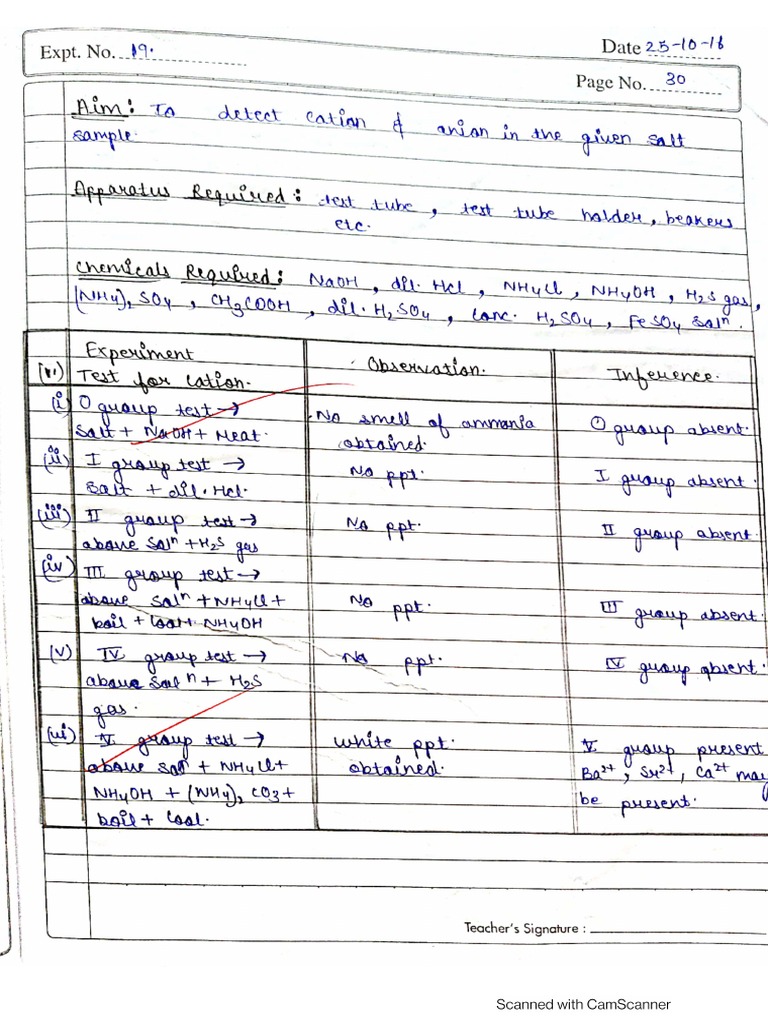 Expt. No. 19.
Date 25-10-18
Page No. 30
Aim: To detect cation & anion in the given salt
sample.
Apparatus Required: test tube, test tube holder, beakers
etc.
Chemicals Required: NaOH, dil. HCl, NH4Cl, NH4OH, H2S gas,
(NH4)2SO4, CH3COOH, dil. H2SO4, Conc. H2SO4, FeSO4 Solⁿ.
Experiment
Observation.
Inference.
Test for Cation.
(i) O group test →
Salt + NaOH + Heat.
No smell of ammonia
obtained.
O group absent.
(ii) I group test →
Salt + dil. HCl.
No ppt.
I group absent.
(iii) II group test →
above Solⁿ + H2S gas
No ppt.
II group absent.
(iv) III group test →
above Solⁿ + NH4Cl +
boil + Cool + NH4OH
No ppt.
III group absent.
(v) IV group test →
above Solⁿ + H2S
gas.
No ppt.
IV group absent.
(vi) V group test →
above Solⁿ + NH4Cl +
NH4OH + (NH4)2CO3 +
boil + Cool.
White ppt.
obtained.
V group present
Ba²⁺, Sr²⁺, Ca²⁺ may
be present.
Teacher's Signature :
Scanned with CamScanner